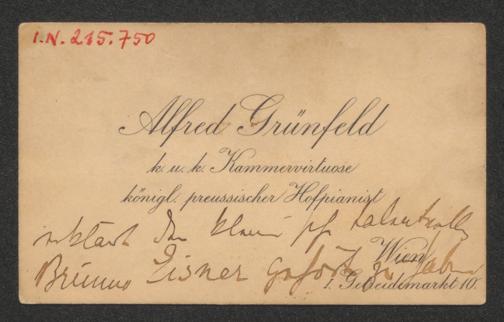 I.N. 215.750
Alfred Grünfeld
k. u. k. Kammervirtuose
königl. preussischer Hofpianist
erklärt den
Wien
Bruno Eisner gehört zu haben
I. Getreidemarkt 10.